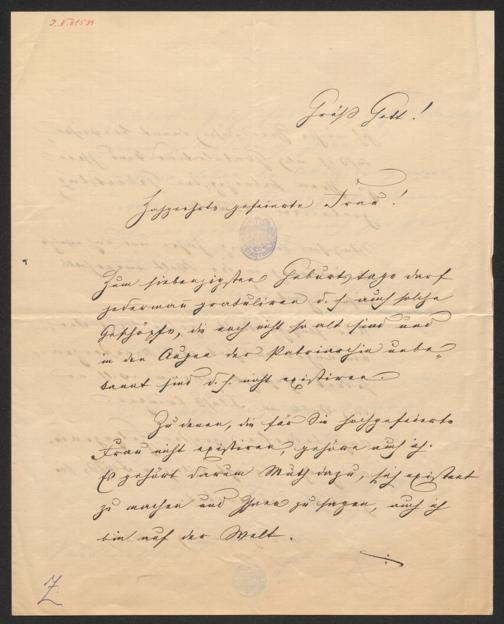 Grüß Gott!
Hochgeehrte gefeierte Frau!
Zum siebenzigsten Geburtstage darf
jederman gratuliren d. h. auch solche
Geschöpfe, die noch nicht so alt sind und
in den Augen der Patriarchin unbe-
kannt sind d. h. nicht existiren.
Zu denen, die für Sie hochgefeierte
Frau nicht existiren, gehöre auch ich.
Es gehört darum Muth dazu, sich existent
zu machen und Ihnen zu sagen, auch ich
bin auf der Welt.